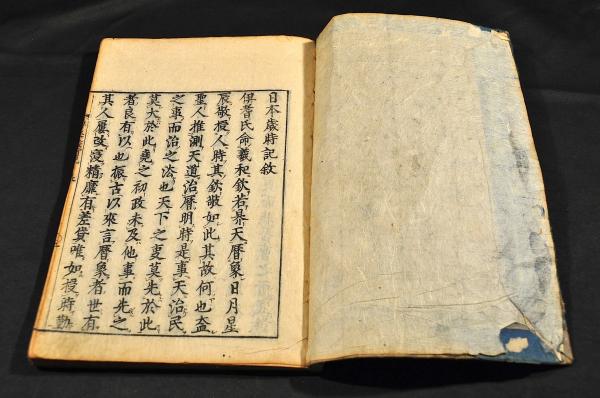 日本歳時記敘
伊耆氏命羲和欽若昊天曆象日月星
辰敬授人時其欽敬如此其故何也盖
聖人推測天道治曆明時是事天治民
之事而治之法也天下之事莫先於此
莫大於此堯之初政未及他事而先之
者良有以也振古以來言曆象者世有
其人屢改漫精靡有差貸唯如授時勤